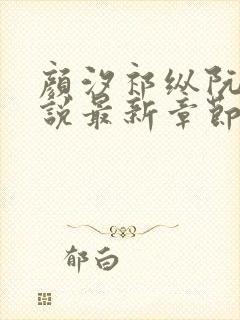 颜汐祁纵阮
說最新章節
郁白